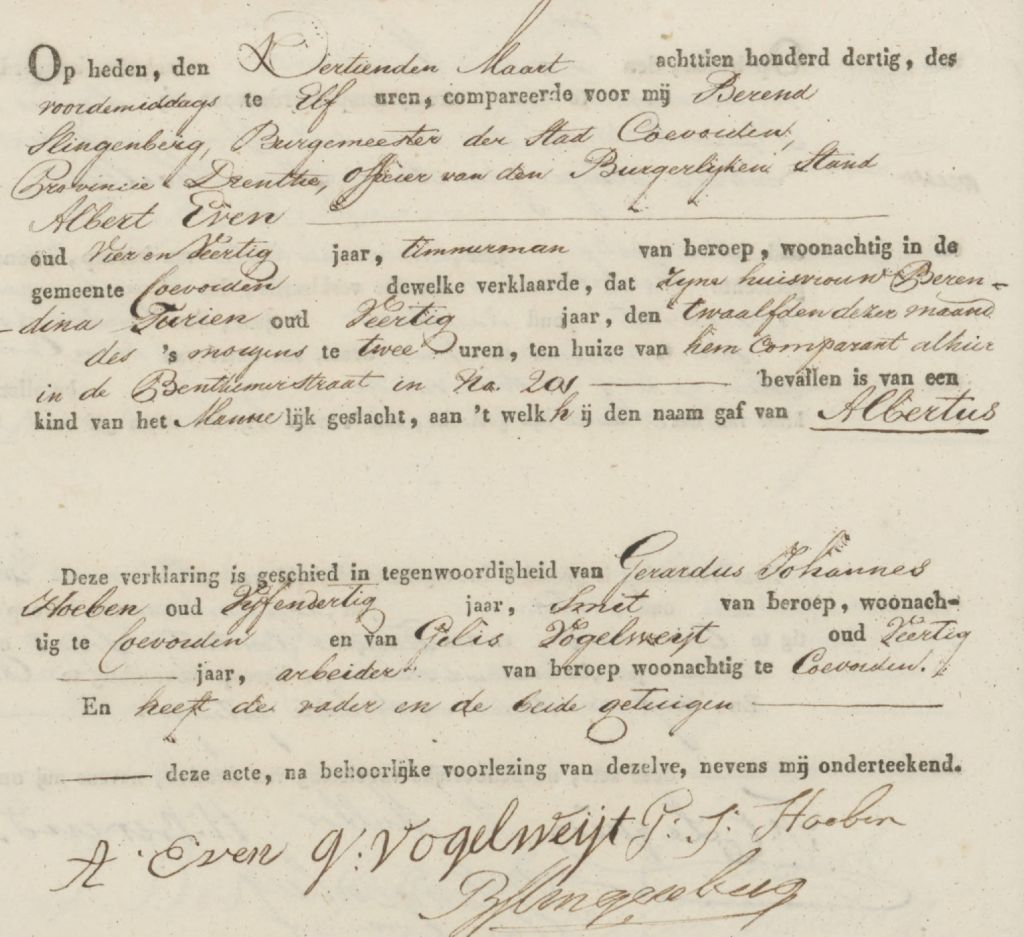 Op heden, den Dertienden Maart achttien honderd dertig, des
voordemiddags te Elf uren, compareerde voor mij Berend
Slingenberg, Burgemeester der Stad Coevorden,
Provincie Drenthe, Officier van den Burgerlijken Stand
Albert Even
oud Vier en Veertig jaar, timmerman van beroep, woonachtig in de
gemeente Coevorden dewelke verklaarde, dat zijne huisvrouw Beren-
-dina Turien oud Veertig jaar, den twaalfden dezer maand
des 's morgens te twee uren, ten huize van hem Comparant alhier
in de Benthemerstraat in No. 201 bevallen is van een
kind van het Mannelijk geslacht, aan 't welk hij den naam gaf van Albertus
Deze verklaring is geschied in tegenwoordigheid van Gerardus Johannes
Hoeben oud Vijfendertig jaar, Smit van beroep, woonach-
tig te Coevorden en van Gelis Vogelweijt oud Veertig
jaar, arbeider van beroep woonachtig te Coevorden.
En heeft de vader en de beide getuigen
deze acte, na behoorlijke voorlezing van dezelve, nevens mij onderteekend.
A. Even g: Vogelweijt G: J: Hoeben
BSlingenberg